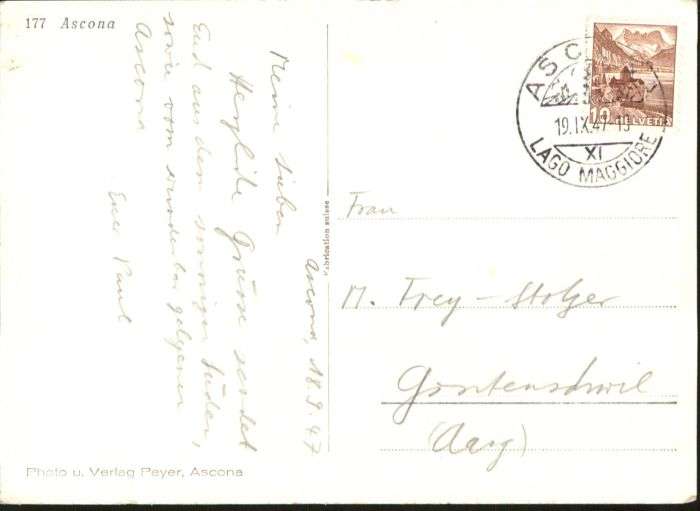 177 Ascona
Ascona, 18.9.47
Meine Lieben
Herzliche Grüsse sendet
Euch aus dem sonnigen Süden,
sowie vom wunderbar gelegenen
Ascona
Euer Paul
Fabrication suisse
ASCONA
19.IX.47-19
XI
LAGO MAGGIORE
10 HELVETIA
Frau
M. Frey-Stolzer
Gontenschwil
(Aarg)
Photo u. Verlag Peyer, Ascona